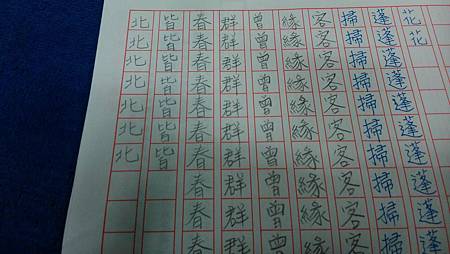 花花
蓬蓬蓬蓬蓬蓬蓬蓬蓬蓬
掃掃掃掃掃掃掃掃掃掃
客客客客客客客客客客
緣緣緣緣緣緣緣緣緣緣
曾曾曾曾曾曾曾曾曾曾
群群群群群群群群群群
春春春春春春春春春春
皆皆皆皆皆皆皆
北北北北北北北